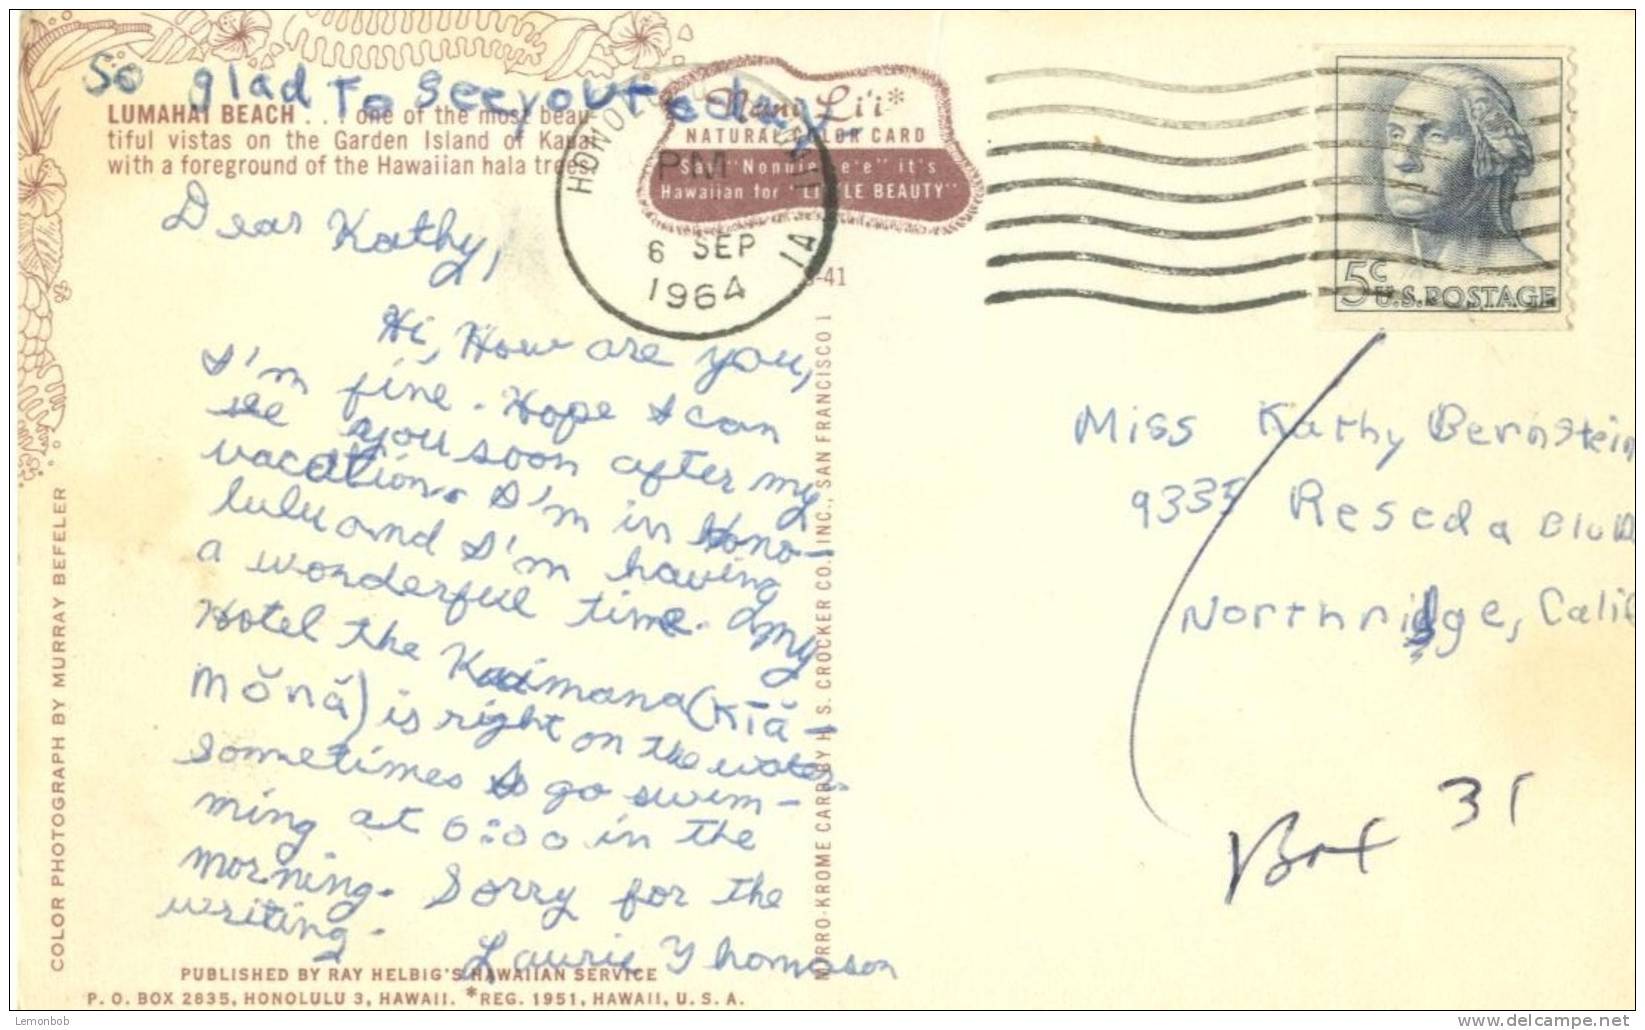 So glad To see you today
LUMAHAI BEACH . . . one of the most beau-
tiful vistas on the Garden Island of Kauai
with a foreground of the Hawaiian hala trees.
Nani Li'i*
NATURAL COLOR CARD
Say "Nonnie Lee'e" it's
Hawaiian for "LITTLE BEAUTY"
HONOLULU
PM
6 SEP
1964
5¢ U.S. POSTAGE
Dear Kathy,
Hi, How are you,
I'm fine. Hope I can
see you soon after my
vacation. I'm in Hono-
lulu and I'm having
a wonderful time. My
Hotel the Kaimana (Kīă-
mŏnă) is right on the water.
sometimes I go swim-
ming at 6:00 in the
morning. Sorry for the
writing.
Laurie Thomason
Miss Kathy Bernstein
9335 Reseda Blvd
Northridge, Calif
Box 31
COLOR PHOTOGRAPH BY MURRAY BEFELER
MIRRO-KROME CARD BY H. S. CROCKER CO. INC., SAN FRANCISCO 1
PUBLISHED BY RAY HELBIG'S HAWAIIAN SERVICE
P. O. BOX 2835, HONOLULU 3, HAWAII. *REG. 1951, HAWAII, U. S. A.
Lemonbob
delcampe.net